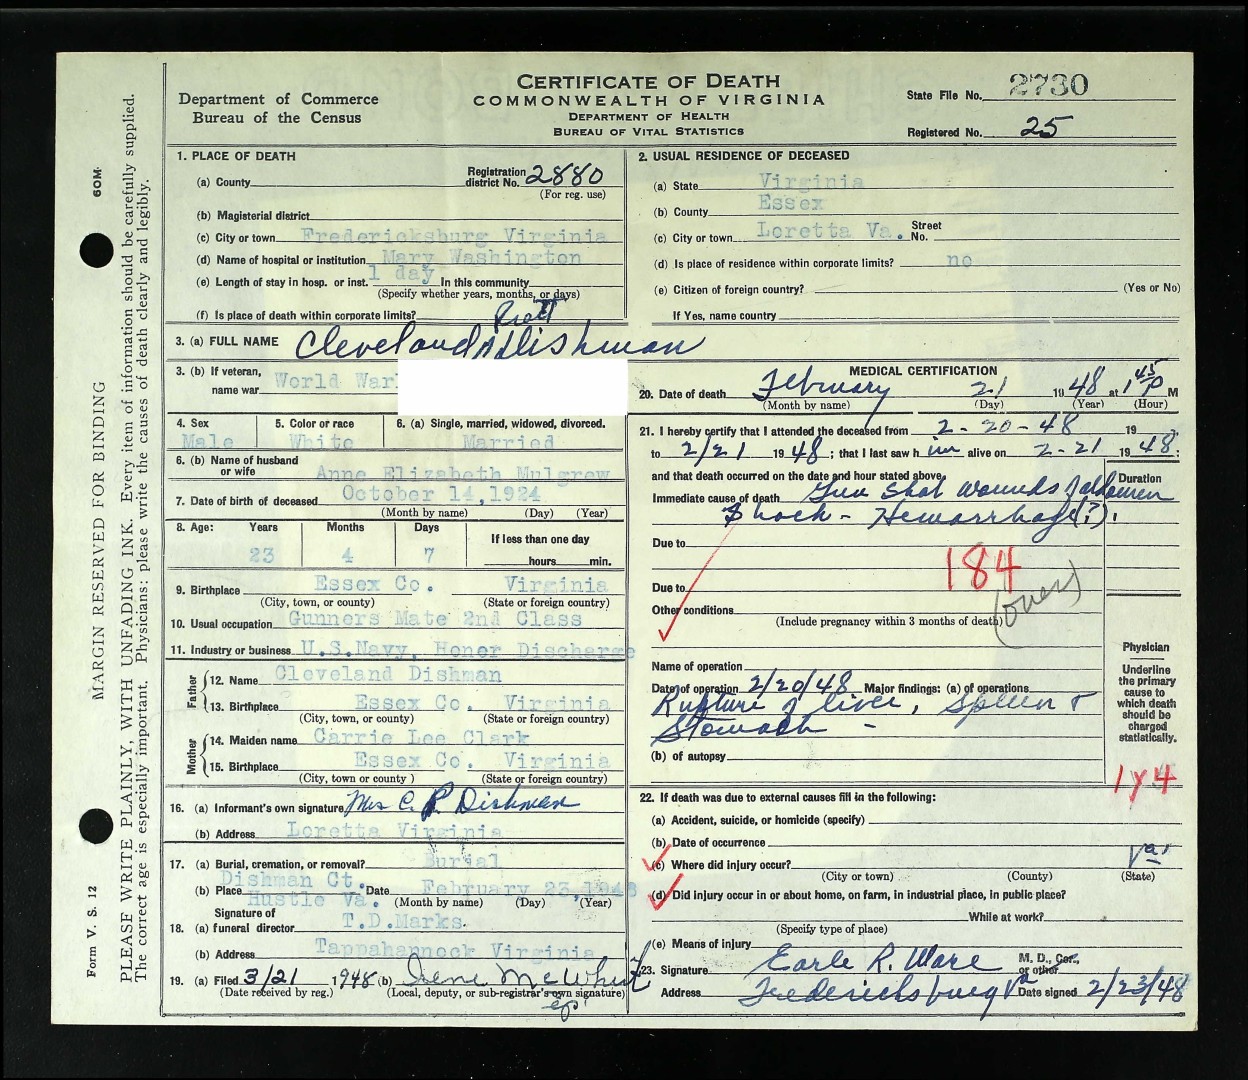 CERTIFICATE OF DEATH
COMMONWEALTH OF VIRGINIA
DEPARTMENT OF HEALTH
BUREAU OF VITAL STATISTICS
Department of Commerce
Bureau of the Census
State File No. 2730
Registered No. 25
1. PLACE OF DEATH
(a) County
Registration district No. 2880
(For reg. use)
(b) Magisterial district
(c) City or town Fredericksburg Virginia
(d) Name of hospital or institution Mary Washington
(e) Length of stay in hosp. or inst. 1 day In this community
(Specify whether years, months, or days)
(f) Is place of death within corporate limits?
2. USUAL RESIDENCE OF DECEASED
(a) State Virginia
(b) County Essex
(c) City or town Loretta Va. Street No.
(d) Is place of residence within corporate limits? no
(e) Citizen of foreign country? (Yes or No)
If Yes, name country
Pratt
3. (a) FULL NAME Cleveland Dishman
3. (b) If veteran, name war World War
4. Sex Male
5. Color or race White
6. (a) Single, married, widowed, divorced. Married
6. (b) Name of husband or wife Anne Elizabeth Mulgrew
7. Date of birth of deceased October 14, 1924
(Month by name) (Day) (Year)
8. Age: Years Months Days If less than one day
23 4 7 hours min.
9. Birthplace Essex Co. Virginia
(City, town, or county) (State or foreign country)
10. Usual occupation Gunners Mate 2nd Class
11. Industry or business U.S.Navy, Honer Discharge
Father
12. Name Cleveland Dishman
13. Birthplace Essex Co. Virginia
(City, town, or county) (State or foreign country)
Mother
14. Maiden name Carrie Lee Clark
15. Birthplace Essex Co. Virginia
(City, town or county ) (State or foreign country)
16. (a) Informant's own signature Mrs C. P. Dishman
(b) Address Loretta Virginia
17. (a) Burial, cremation, or removal? Burial
(b) Place Dishman Ct. Hustle Va. Date February 23, 1948
(Month by name) (Day) (Year)
18. (a) Signature of funeral director T.D.Marks
(b) Address Tappahannock Virginia
19. (a) Filed 3/21 1948 (b) Irene McWhirt
(Date received by reg.) (Local, deputy, or sub-registrar's own signature)
MEDICAL CERTIFICATION
20. Date of death February 21 1948 at 1 45 P M
(Month by name) (Day) (Year) (Hour)
21. I hereby certify that I attended the deceased from 2-20-48 19
to 2/21 1948; that I last saw him alive on 2-21 1948;
and that death occurred on the date and hour stated above. Duration
Immediate cause of death Gun Shot Wounds of abdomen
Shock - Hemorrhage (?).
Due to
184
Due to
(over)
Other conditions
(Include pregnancy within 3 months of death)
Name of operation
Date of operation 2/20/48 Major findings: (a) of operations
Rupture of liver, Spleen &
Stomach -
(b) of autopsy
Physician
Underline the primary cause to which death should be charged statistically.
22. If death was due to external causes fill in the following:
(a) Accident, suicide, or homicide (specify)
(b) Date of occurrence
(c) Where did injury occur? Va.
(City or town) (County) (State)
(d) Did injury occur in or about home, on farm, in industrial place, in public place?
While at work?
(Specify type of place)
(e) Means of injury
23. Signature Earle R. Ware M. D., Cor., or other
Address Fredericksburg Va Date signed 2/23/48
Form V. S. 12
MARGIN RESERVED FOR BINDING
60M
PLEASE WRITE PLAINLY, WITH UNFADING INK. Every item of information should be carefully supplied.
The correct age is especially important. Physicians: please write the causes of death clearly and legibly.